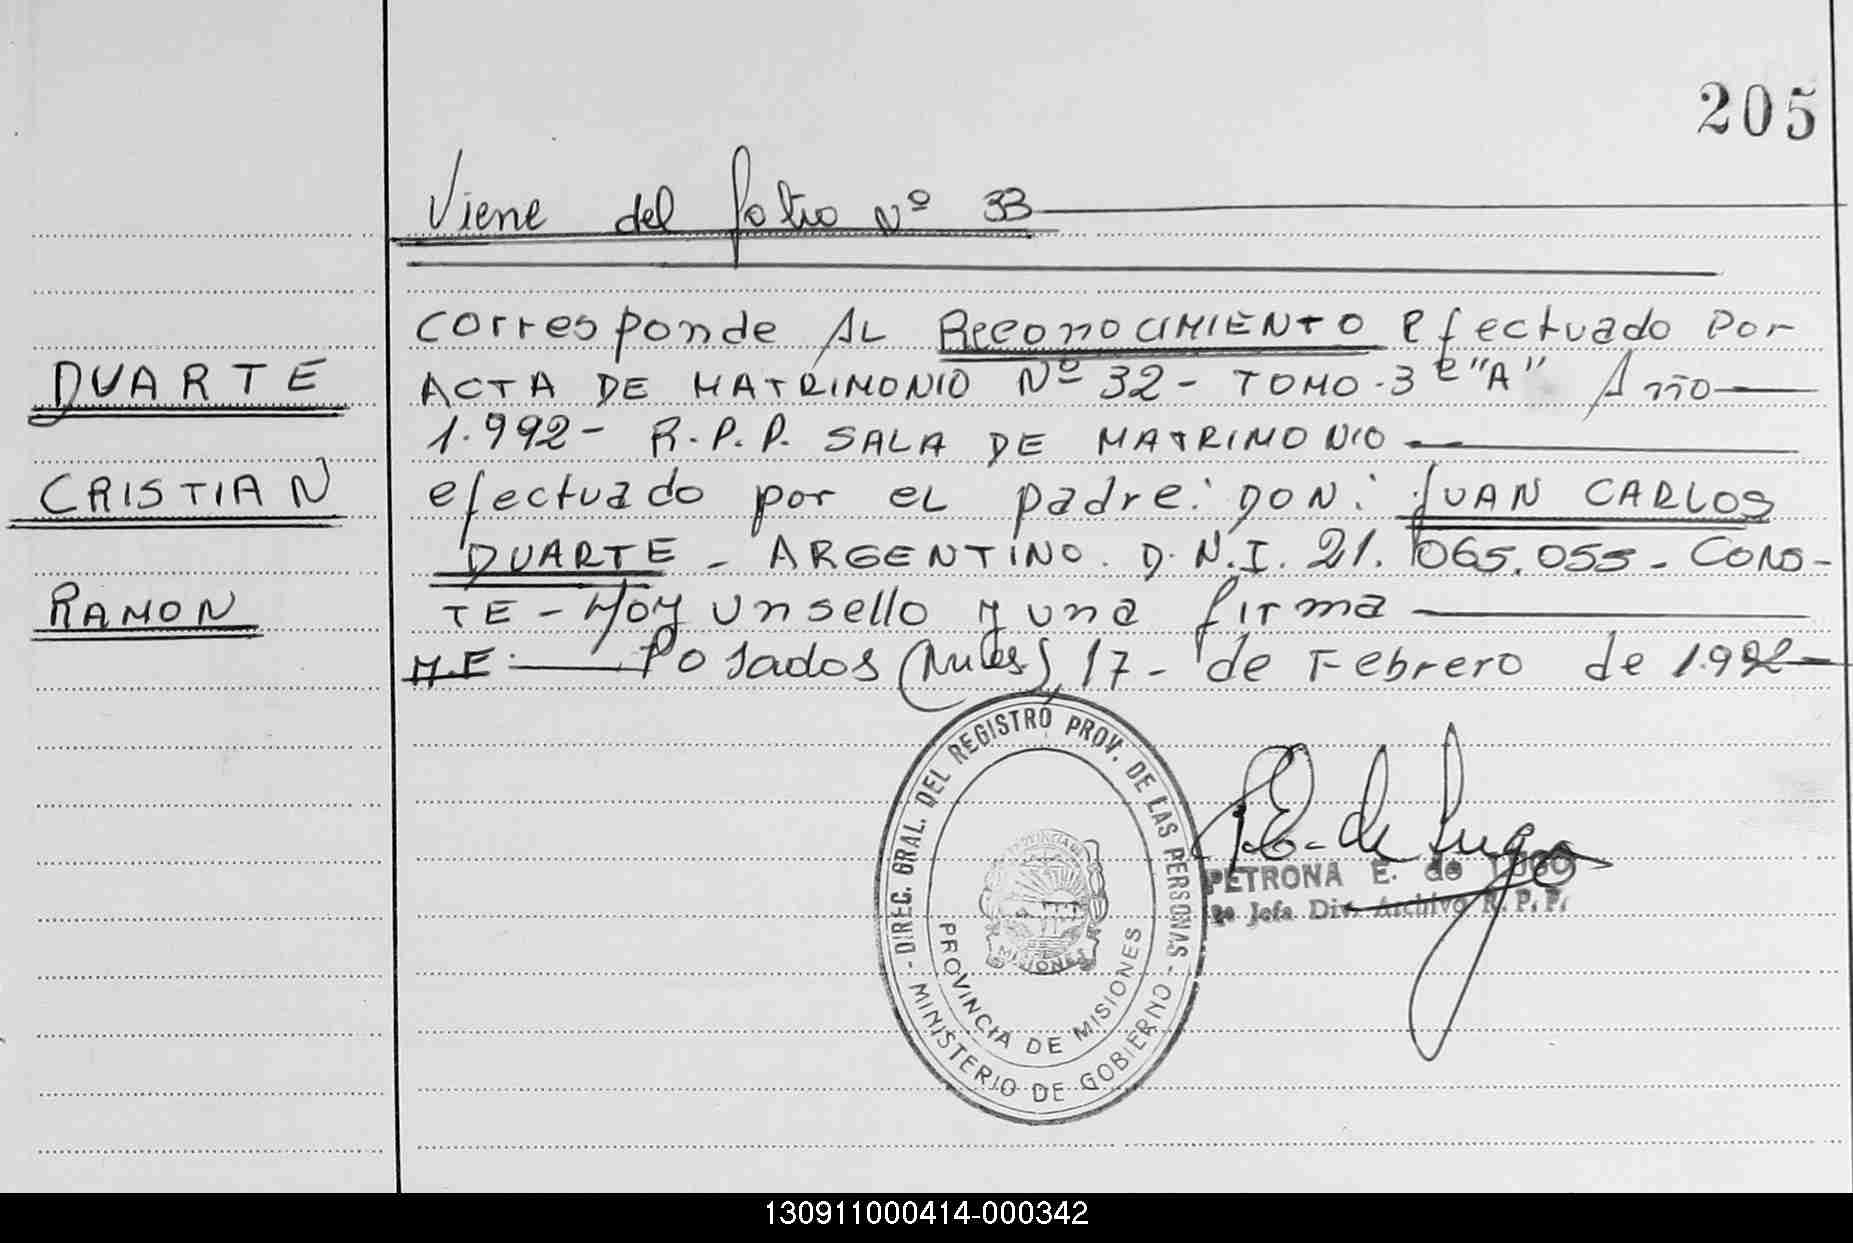 205
Viene del folio Nº 33
Corresponde AL RECONOCIMIENTO efectuado por
DUARTE
ACTA DE MATRIMONIO Nº 32 - TOMO - 3 "A" Año
1.992 - R.P.P. SALA DE MATRIMONIO
CRISTIAN
efectuado por EL padre: DON: JUAN CARLOS
DUARTE - ARGENTINO. D.N.I. 21.065.055 - CONS-
RAMON
TE - Hoy un sello y una firma
M.E. Posadas (Mnes), 17 - de Febrero de 1.992
DIREC. GRAL. DEL REGISTRO PROV. DE LAS PERSONAS
- MINISTERIO DE GOBIERNO -
PROVINCIA DE MISIONES
MISIONES
P.E. de Lugo
PETRONA E. de LUGO
Jefa Div. Archivo R.P.P.
130911000414-000342